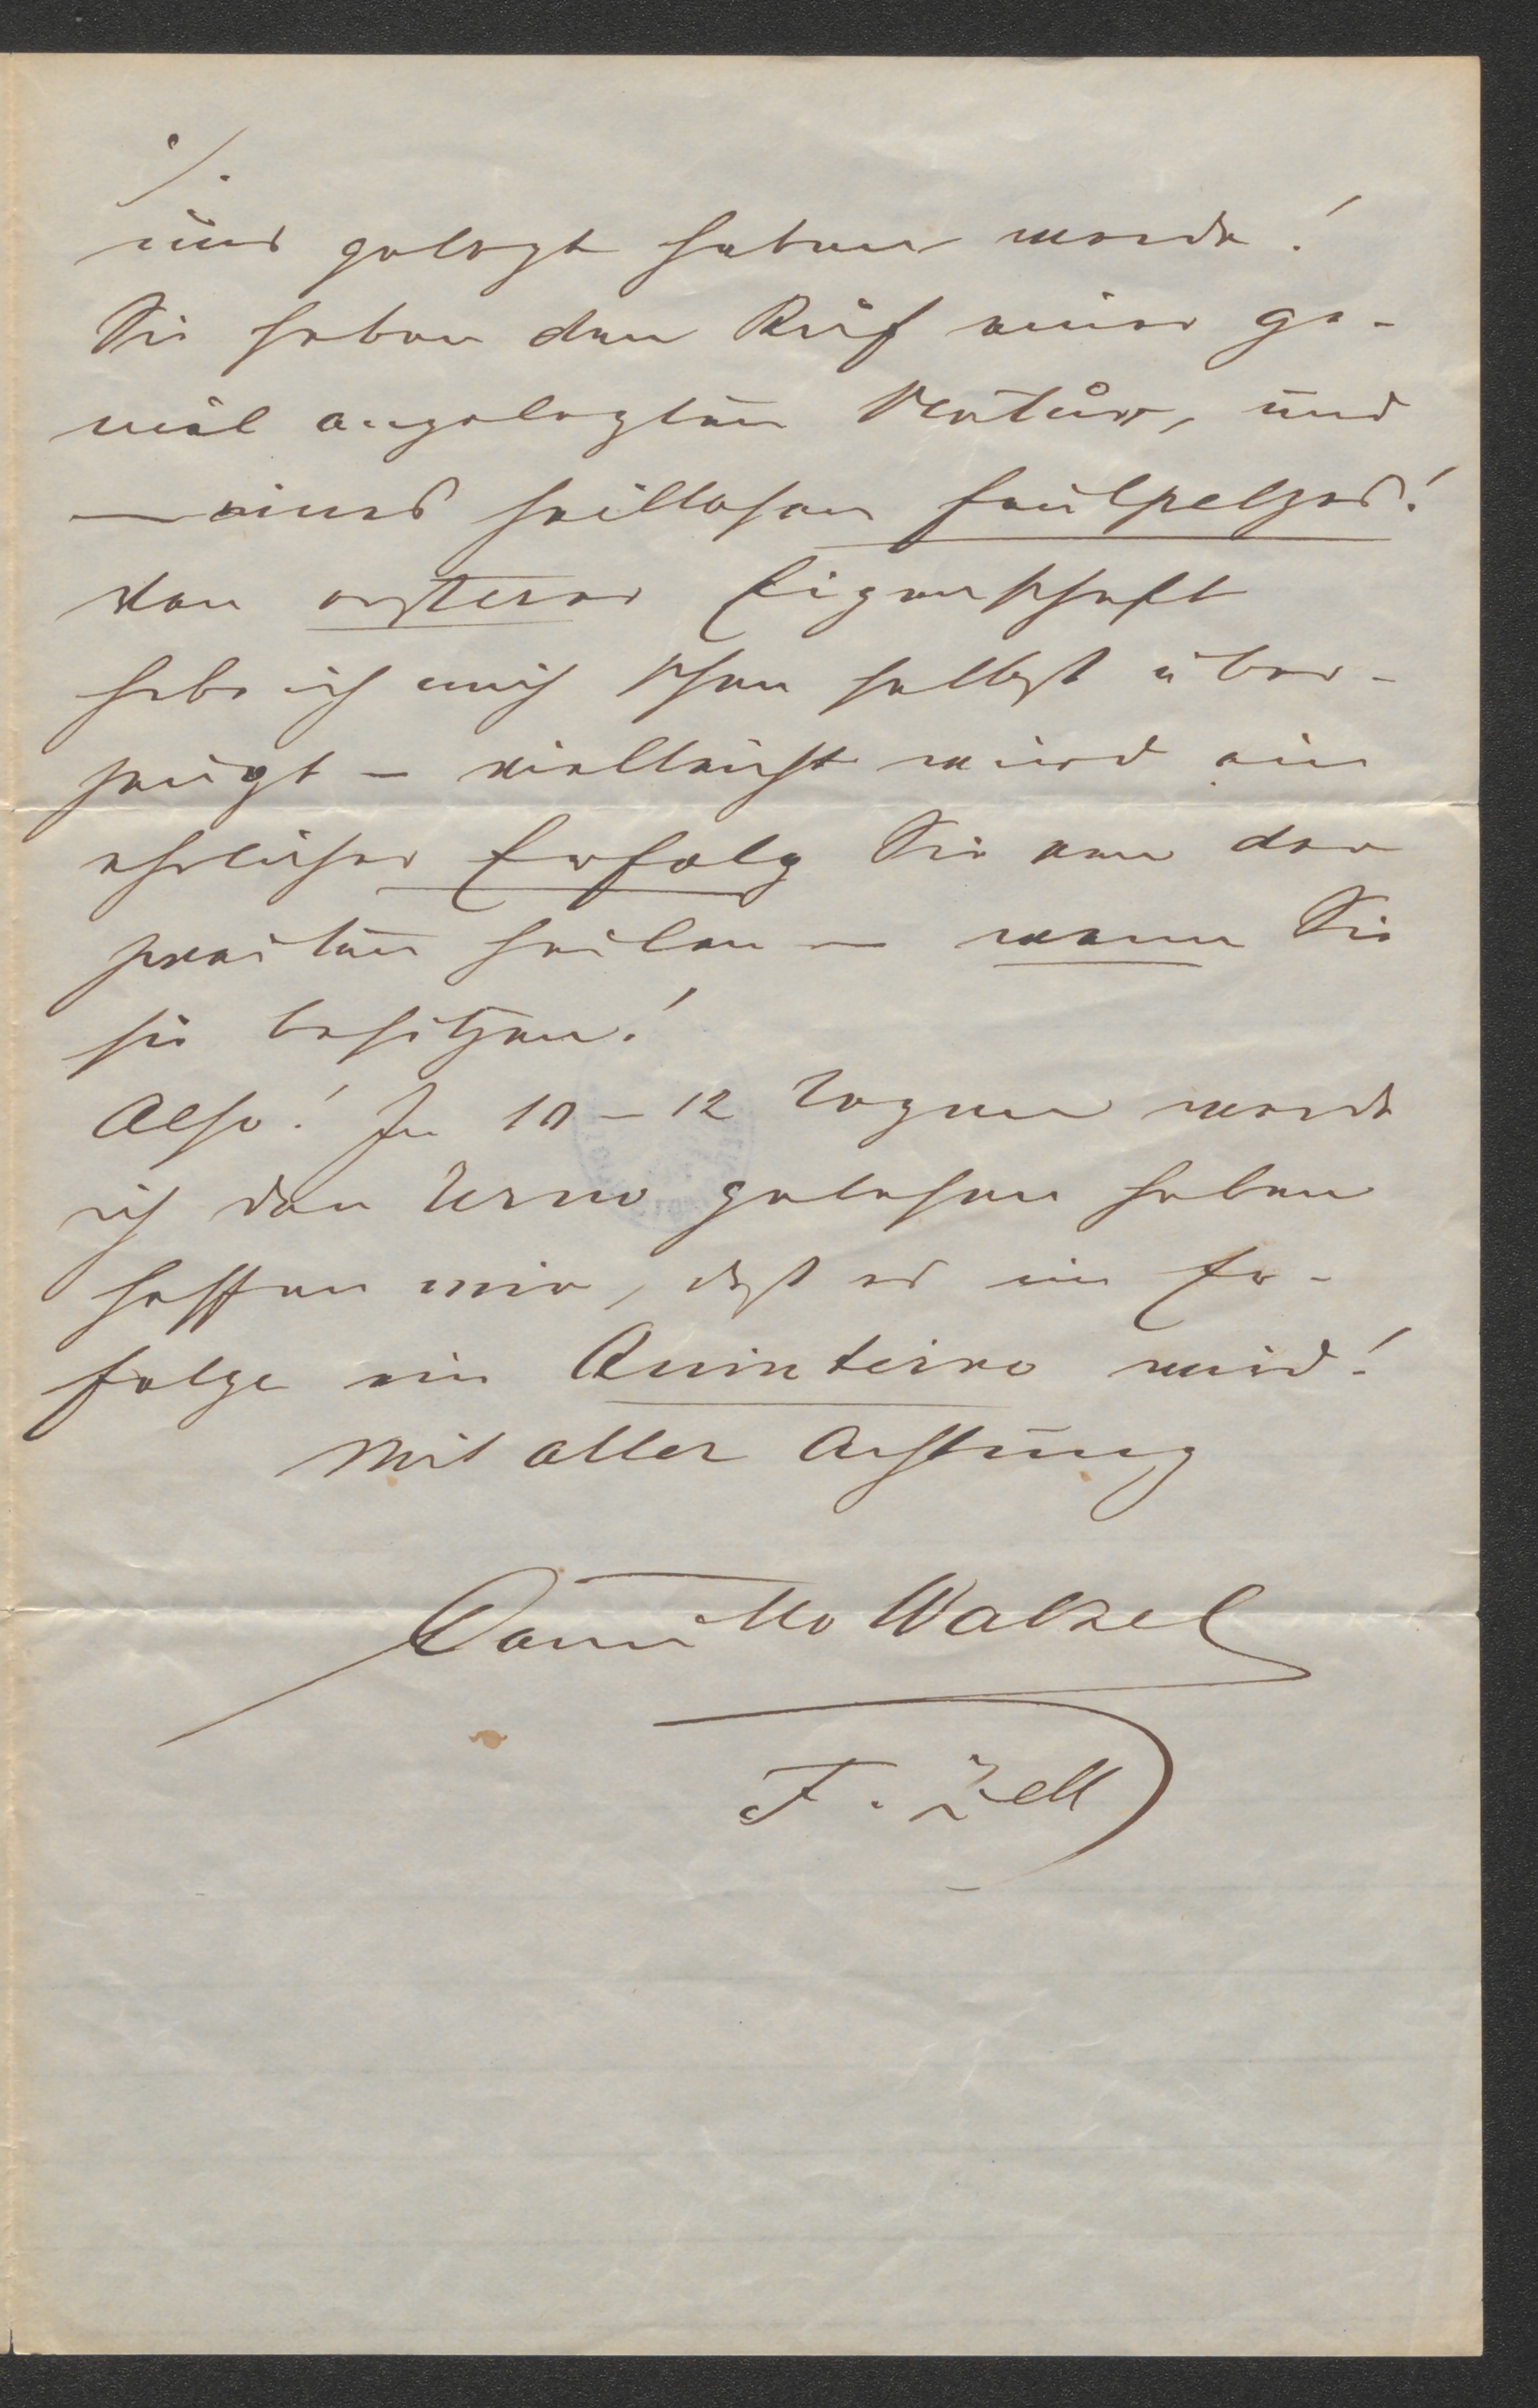 ./.
uns gelegt haben werde!
Sie haben den Ruf einer ge-
nial angelegten Natur, und
— eines heillosen Faulpelzes!
Von ersterer Eigenschaft
habe ich mich schon selbst über-
zeugt – vielleicht wird ein
ehrlicher Erfolg Sie von der
zweiten heilen – wenn Sie
sie besitzen!
Also! In 10–12 Tagen werde
ich den Terno gelesen haben
hoffen wir, daß es im Er-
folge ein Quinterno wird!
Mit aller Achtung
Camillo Walzel
F. Zell